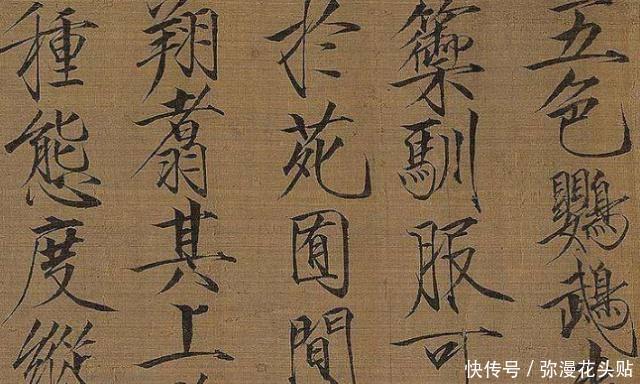 五色鸚鵡
籞馴服可
於苑囿間
翔翥其上
種態度縱
快传号 / 弥漫花头贴